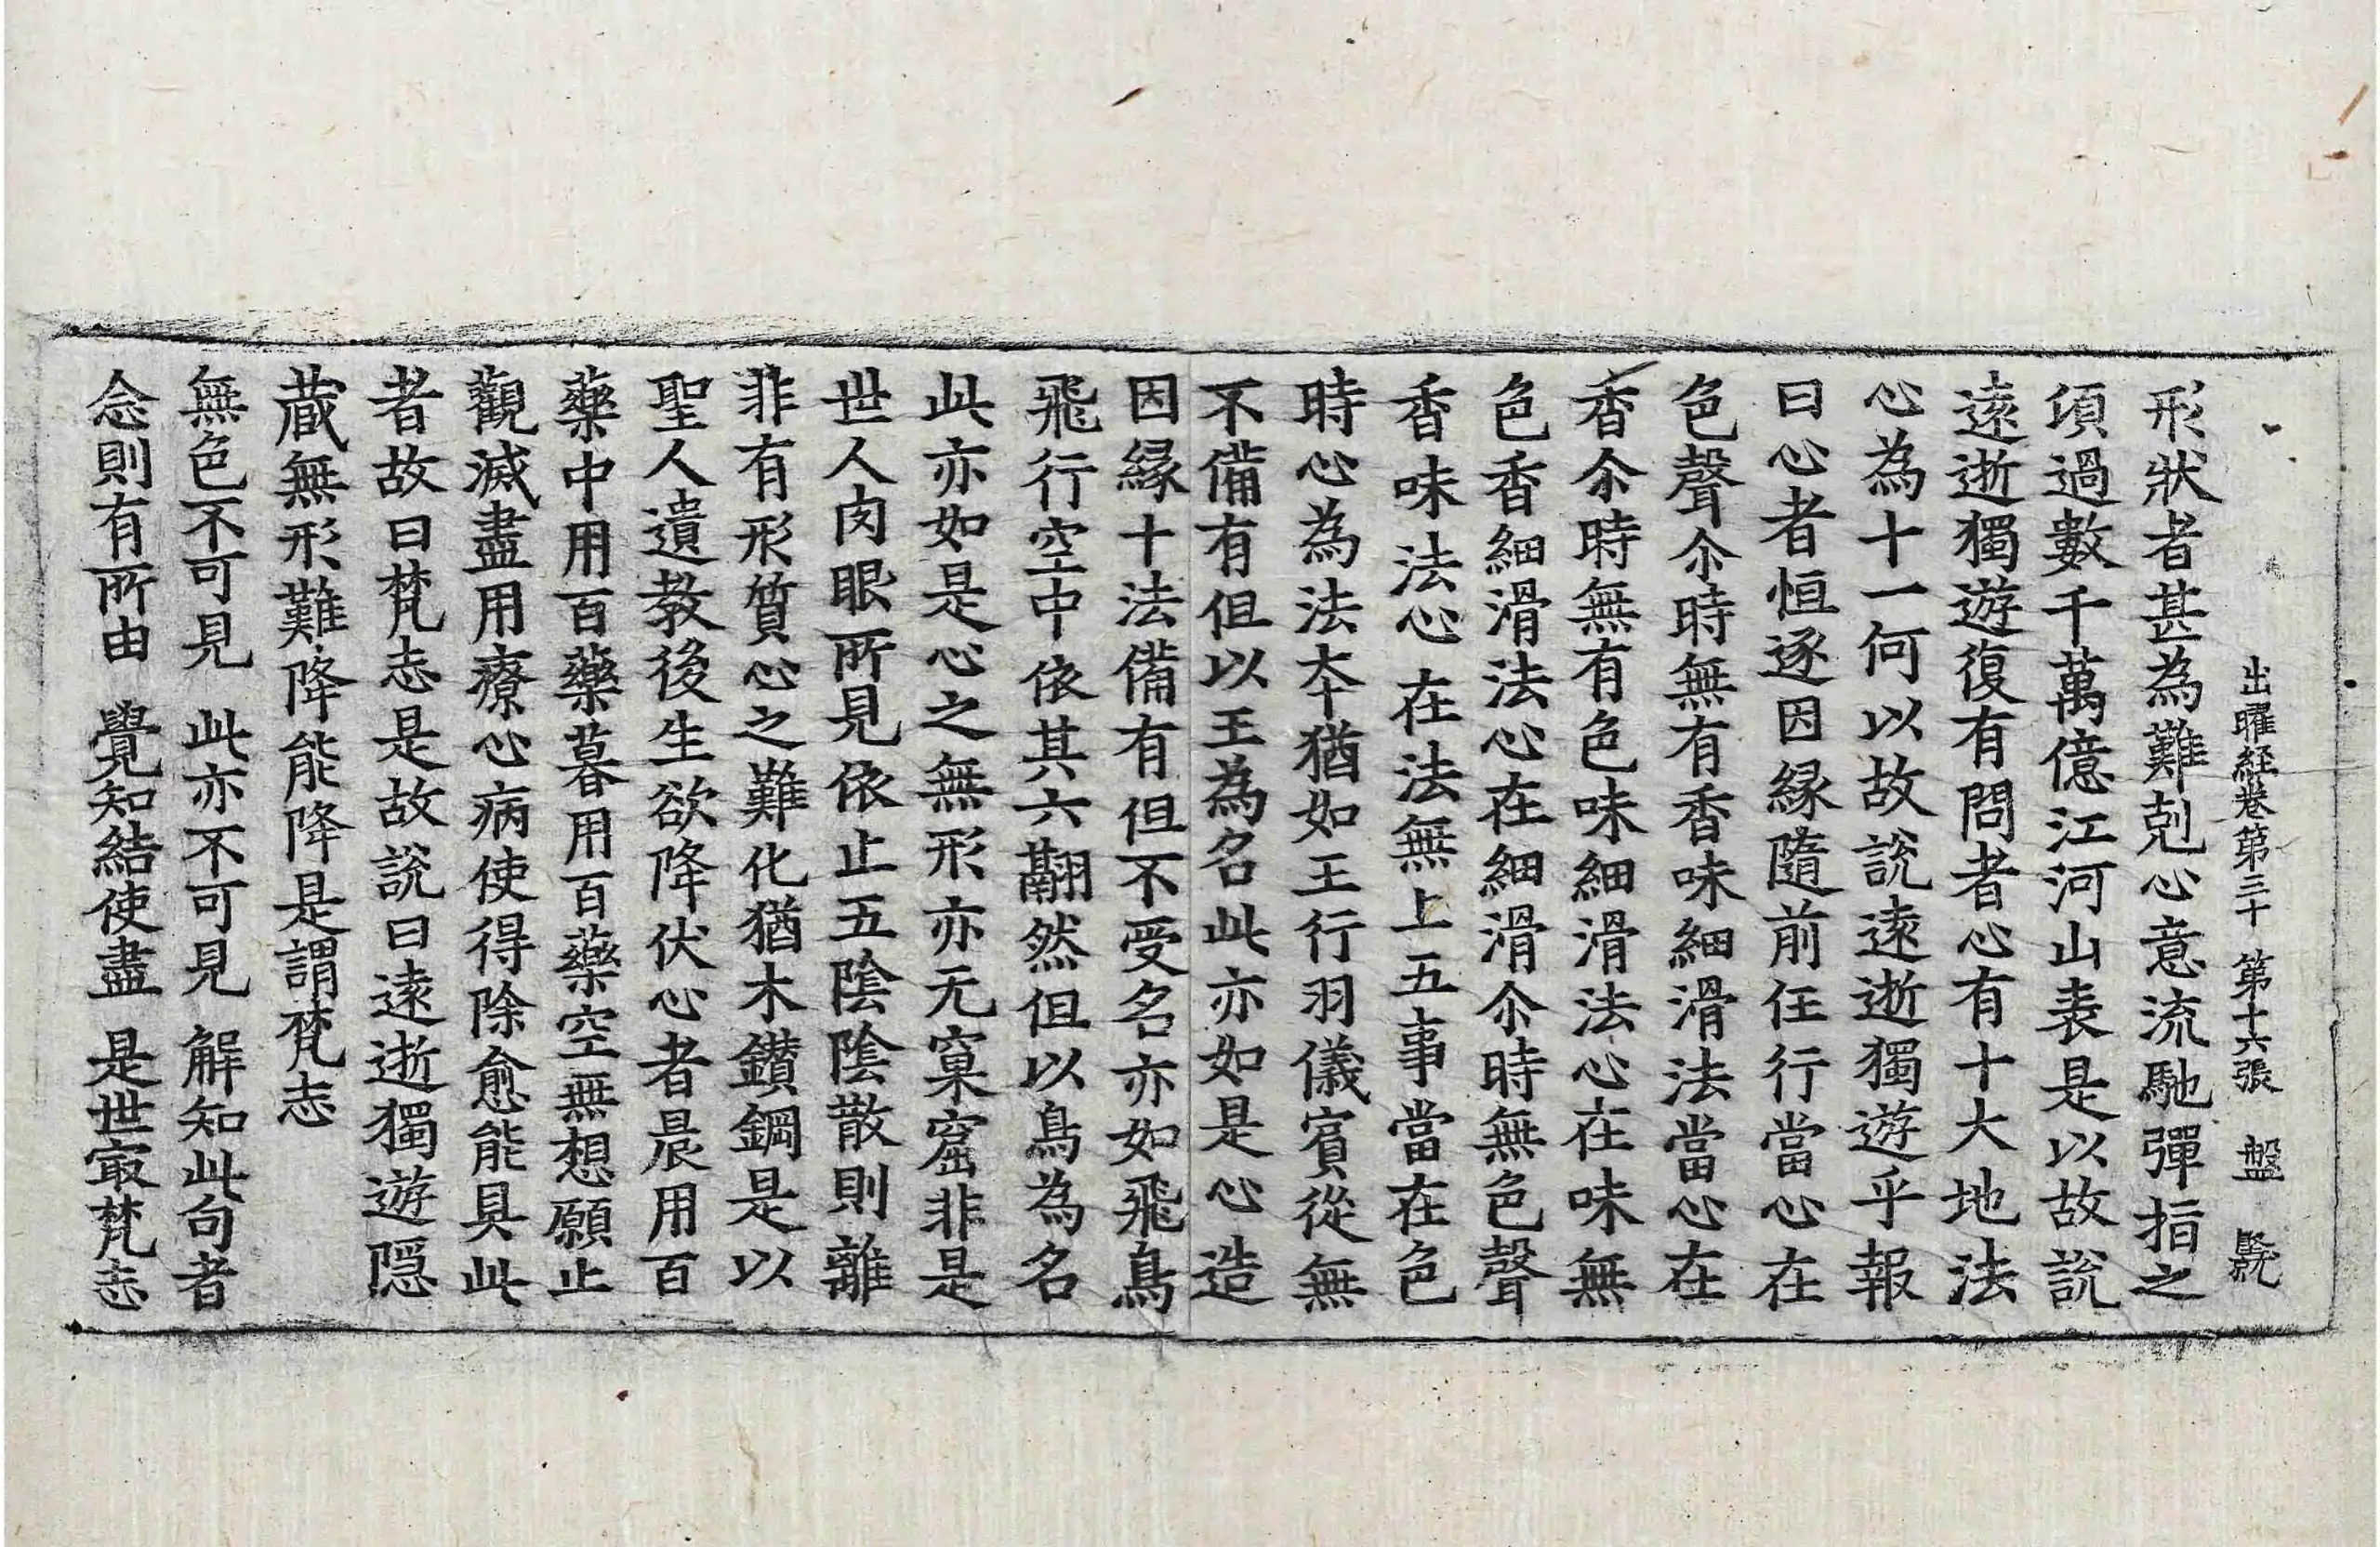 出曜経卷第三十 第十六張 盤
形狀者甚為難剋心意流馳彈指之
項過數千萬億江河山表是以故說
遠逝獨遊復有問者心有十大地法
心為十一何以故說遠逝獨遊乎報
曰心者恒逐因縁隨前任行當心在
色聲尒時無有香味細滑法當心在
香尒時無有色味細滑法心在味無
色香細滑法心在細滑尒時無色聲
香味法心在法無上五事當在色
時心為法夲猶如王行羽儀賔從無
不備有但以王為名此亦如是心造
因縁十法備有但不受名亦如飛鳥
飛行空中依其六翮然但以鳥為名
此亦如是心之無形亦无窠窟非是
世人肉眼所見依止五陰陰散則離
非有形質心之難化猶木鑚鋼是以
聖人遺教後生欲降伏心者晨用百
藥中用百藥暮用百藥空無想願止
觀滅盡用療心病使得除愈能具此
者故曰梵志是故說曰遠逝獨遊隠
蔵無形難降能降是謂梵志
無色不可見 此亦不可見 解知此句者
念則有所由 覺知結使盡 是世㝡梵志